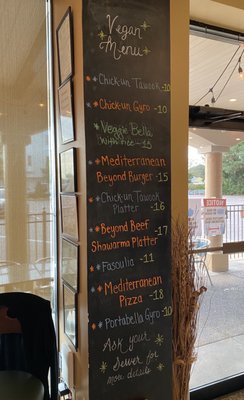 Vegan
Menu
* Chick-un Tawook -10
* Chick-un Gyro -10
* Veggie Bella
w/Hummus -15
* Mediterranean
Beyond Burger -15
* Chick-un Tawook
Platter -16
* Beyond Beef
Shawarma Platter -17
* Fasoulia -11
* Mediterranean
Pizza -18
* Portabella Gyro -10
Ask your
Server for
more details
NOTICE